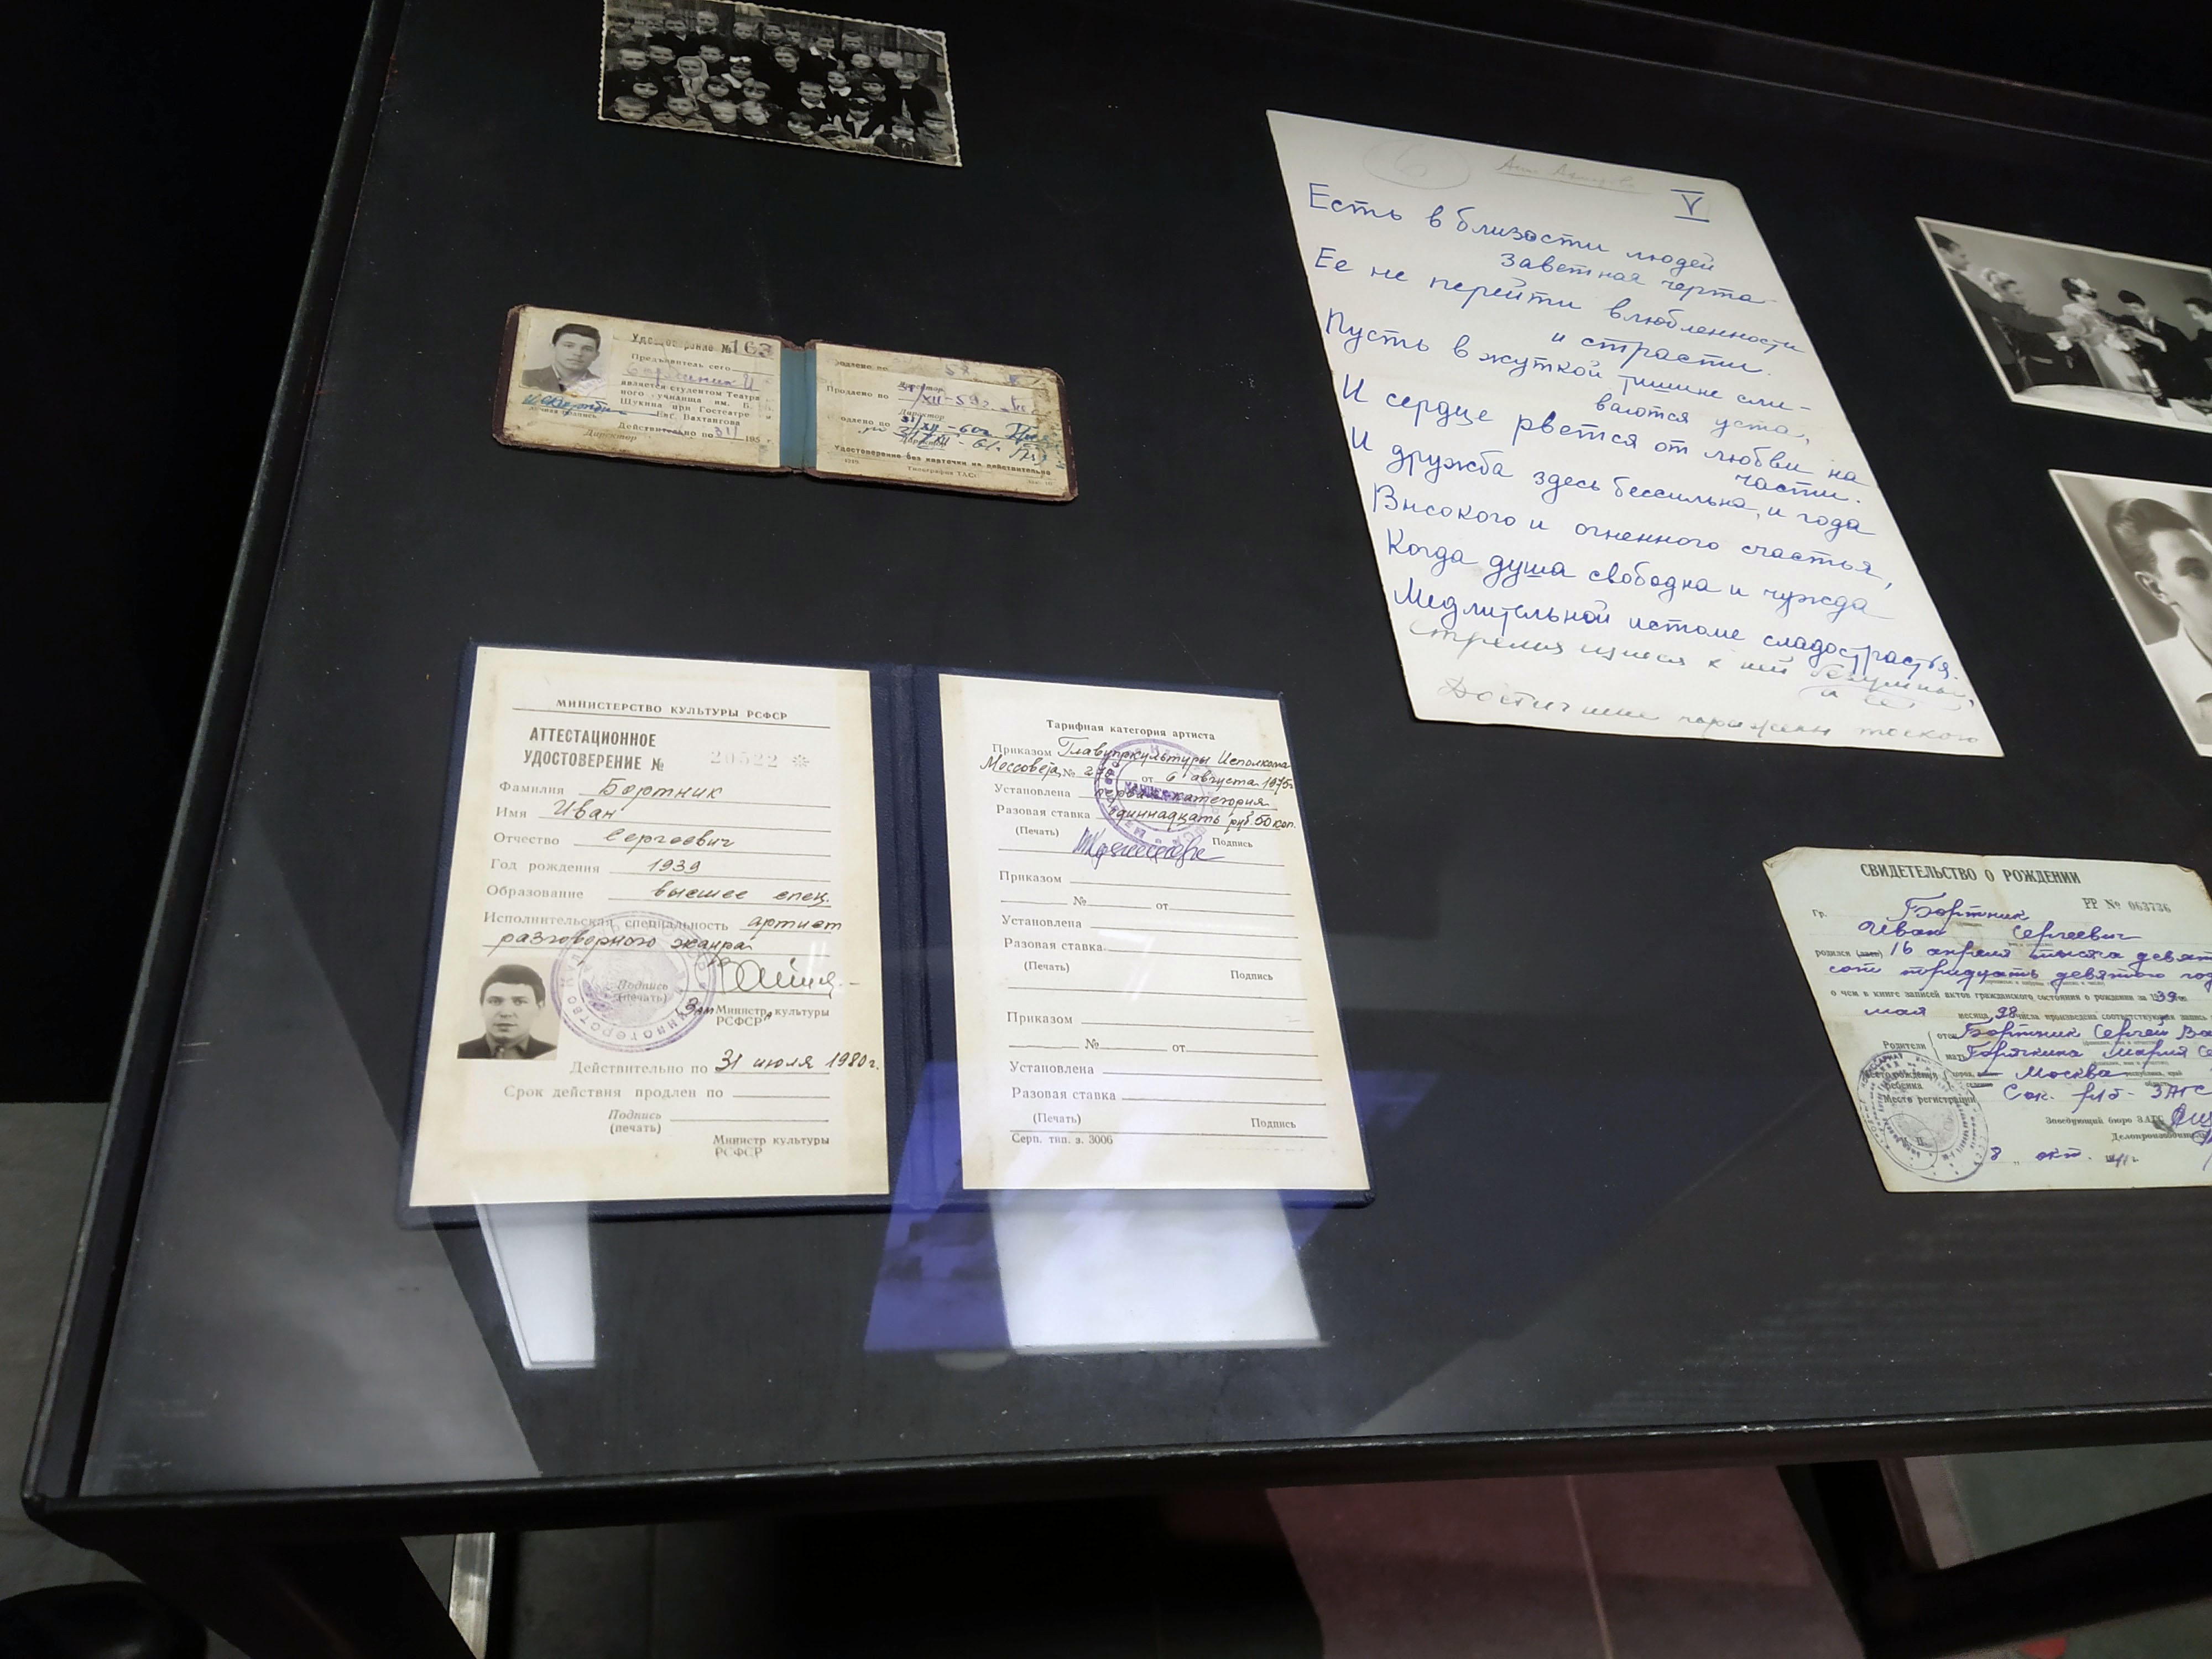 Удостоверение №163
Предъявитель сего
Бортник И
является студентом Театра
ного училища им. Б.
Щукина при Гостеатре
Евг. Вахтангова
личная подпись
Действительно по 31/ 195
Директор
одлено по 58
Директор
Продлено по 31/XII-59г.
Директор
одлено по 31/XII-60г.
по 31/XII-61.
Удостоверение без карточки не действительно
Типография ТАСС
V
Есть в близости людей
заветная черта
Ее не перейти влюбленности
и страсти.
Пусть в жуткой тишине сли-
ваются уста,
И сердце рвется от любви на
части.
И дружба здесь бессильна, и года
Высокого и огненного счастья,
Когда душа свободна и чужда
Медлительной истоме сладострастья.
Стремящиеся к ней безумны,
а ее
Достигшие поражены тоскою
МИНИСТЕРСТВО КУЛЬТУРЫ РСФСР
АТТЕСТАЦИОННОЕ
УДОСТОВЕРЕНИЕ № 20522 *
Фамилия Бортник
Имя Иван
Отчество Сергеевич
Год рождения 1939
Образование высшее спец.
Исполнительская специальность артист
разговорного жанра
Подпись
(печать)
Зам Министр культуры
РСФСР
Действительно по 31 июля 1980г.
Срок действия продлен по
Подпись
(печать)
Министр культуры
РСФСР
Тарифная категория артиста
Приказом Главупркультуры Исполкома
Моссовета № от 6 августа 1975г
Установлена первая категория
Разовая ставка одиннадцать руб. 50 коп.
(Печать) Подпись
Приказом
№ от
Установлена
Разовая ставка
(Печать) Подпись
Приказом
№ от
Установлена
Разовая ставка
(Печать) Подпись
Серп. тип. з. 3006
СВИДЕТЕЛЬСТВО О РОЖДЕНИИ
РР № 063736
Гр. Бортник
Иван Сергеевич
родился 16 апреля тысяча девят
сот тридцать девятого год
о чем в книге записей актов гражданского состояния о рождении за 1939 год
мая месяца 28 числа произведена соответствующая запись
Родители отец Бортник Сергей Ва
мать Горячкина Мария Се
Место рождения
ребенка Москва
Место регистрации Сок. ЗАГС
Заведующий бюро ЗАГС
Делопроизводитель
8 окт.